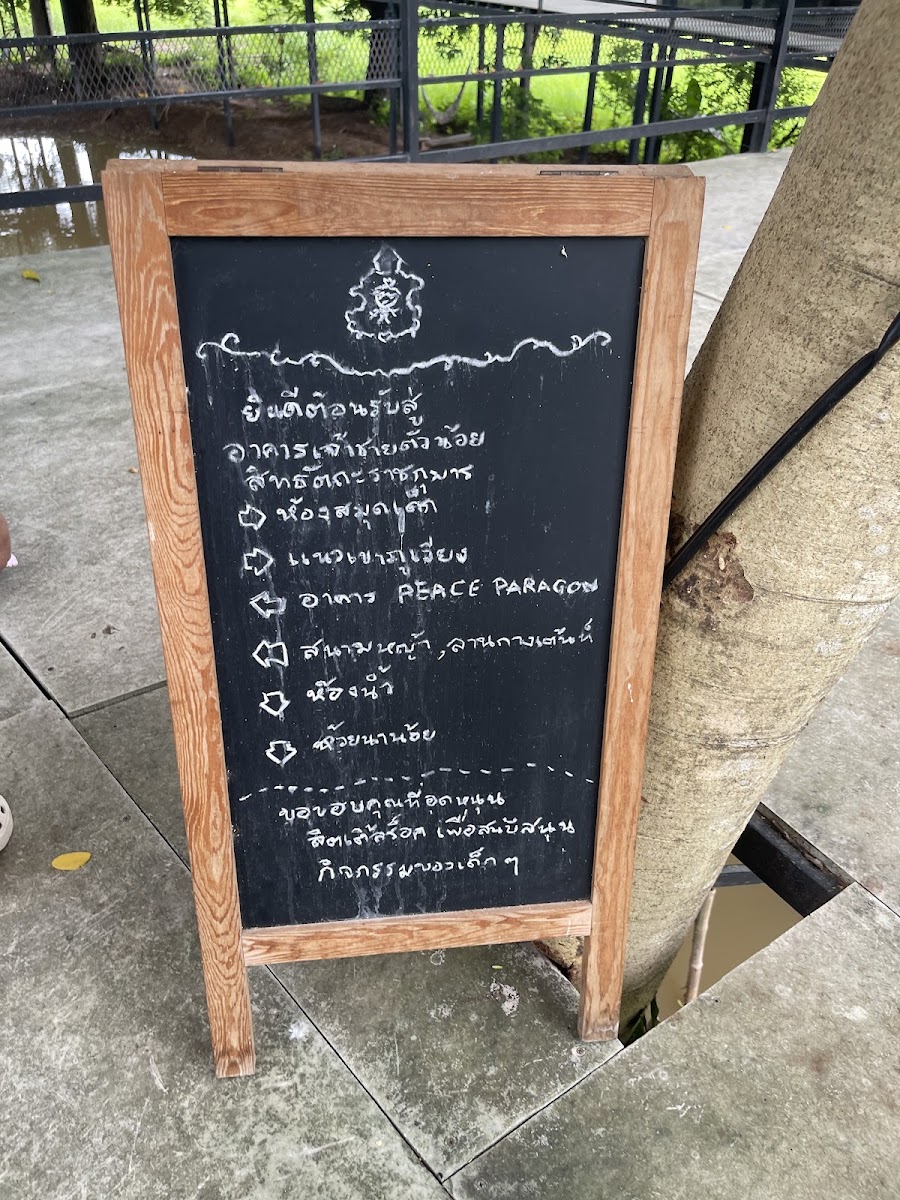 ยินดีต้อนรับสู่
อาคารเจ้าชายตัวน้อย
สิทธัตถะราชกุมาร
ห้องสมุดเด็ก
แนวเขาภูเวียง
อาคาร PEACE PARAGON
สนามหญ้า, ลานกางเต้นท์
ห้องน้ำ
ห้วยนาน้อย
ขอขอบคุณที่อุดหนุน
เพื่อสนับสนุน
กิจกรรมของเด็ก ๆ